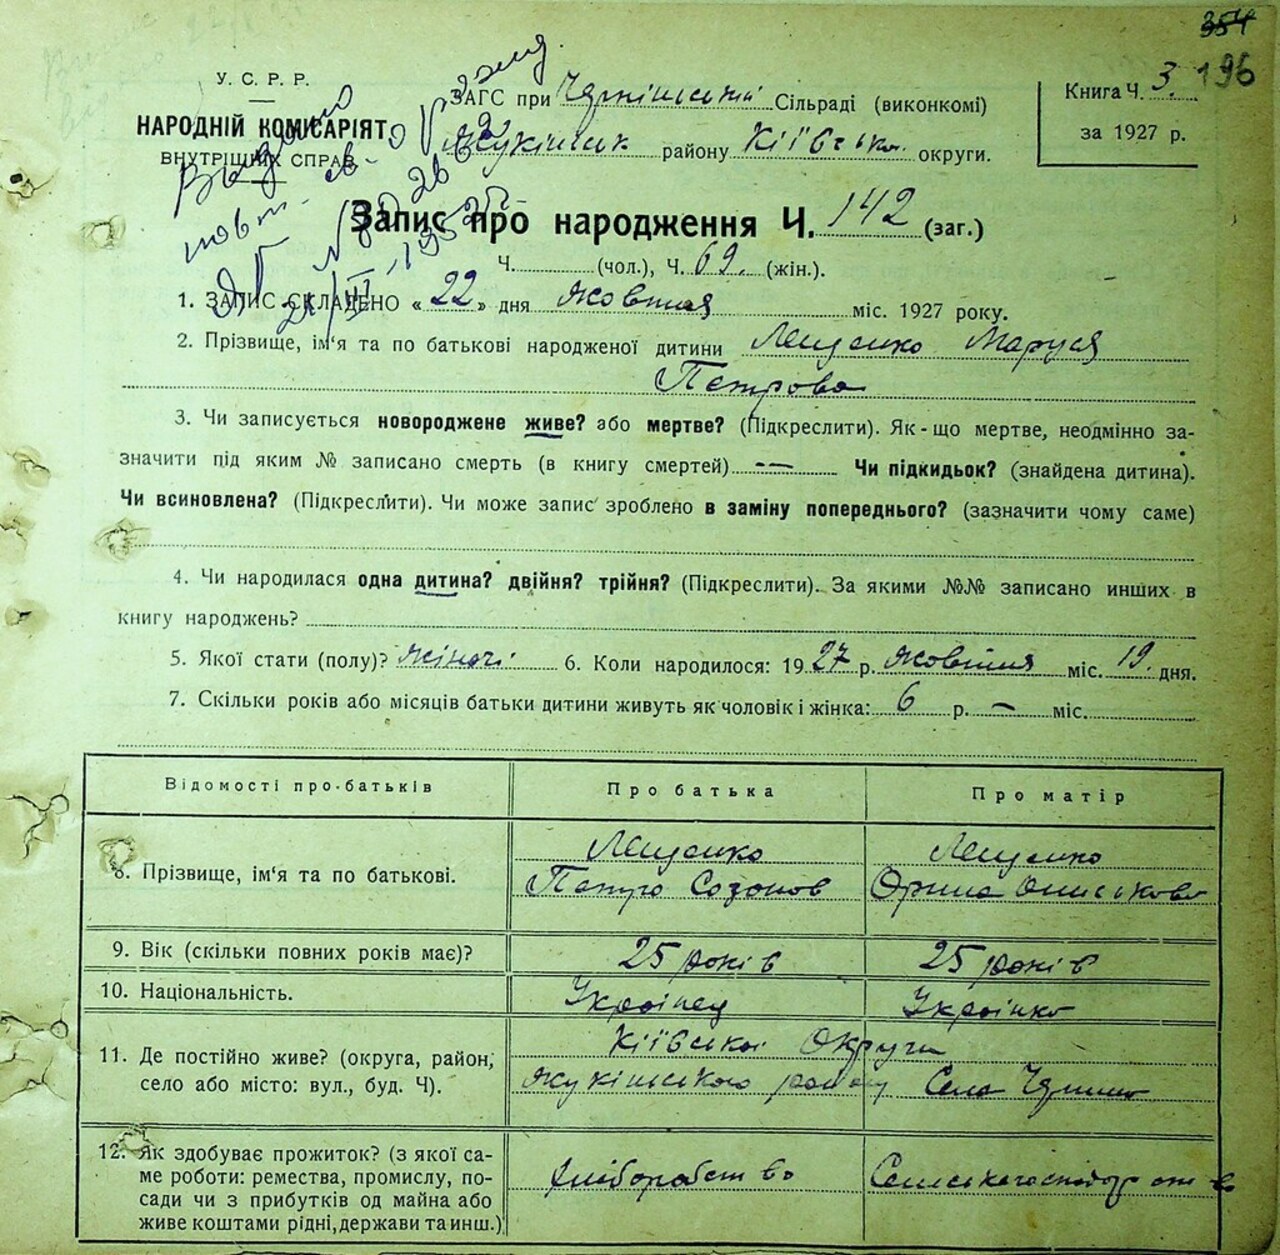 354
196
У. С. Р. Р.
НАРОДНІЙ КОМИСАРІЯТ
ВНУТРІШНІХ СПРАВ
ЗАГС при Сільраді (виконкомі)
району Київсько округи.
Книга Ч. 3.
за 1927 р.
Видано
повт. св-о
Запис про народження Ч. 142 (заг.)
Ч. (чол.), Ч. 69. (жін.).
1. ЗАПИС СКЛАДЕНО « 22 » дня Жовтня міс. 1927 року.
2. Прізвище, ім'я та по батькові народженої дитини Лещенко Маруся
Петрова
3. Чи записується новороджене живе? або мертве? (Підкреслити). Як-що мертве, неодмінно за-
значити під яким № записано смерть (в книгу смертей) —— Чи підкидьок? (знайдена дитина).
Чи всиновлена? (Підкреслити). Чи може запис зроблено в заміну попереднього? (зазначити чому саме)
4. Чи народилася одна дитина? двійня? трійня? (Підкреслити). За якими №№ записано инших в
книгу народжень?
5. Якої стати (полу)? жіночі 6. Коли народилося: 1927 р. жовтня міс. 19. дня.
7. Скільки років або місяців батьки дитини живуть як чоловік і жінка: 6 р. — міс.
Відомості про батьків
Про батька
Про матір
8. Прізвище, ім'я та по батькові.
Лещенко
Петро Созонов
Лещенко
Орина
9. Вік (скільки повних років має)?
25 років
25 років
10. Національність.
Українец
Українка
11. Де постійно живе? (округа, район,
село або місто: вул., буд. Ч).
Київської Округи
Жукінського району Село
12. Як здобуває прожиток? (з якої са-
ме роботи: ремества, промислу, по-
сади чи з прибутків од майна або
живе коштами рідні, держави та инш.)
хліборобство